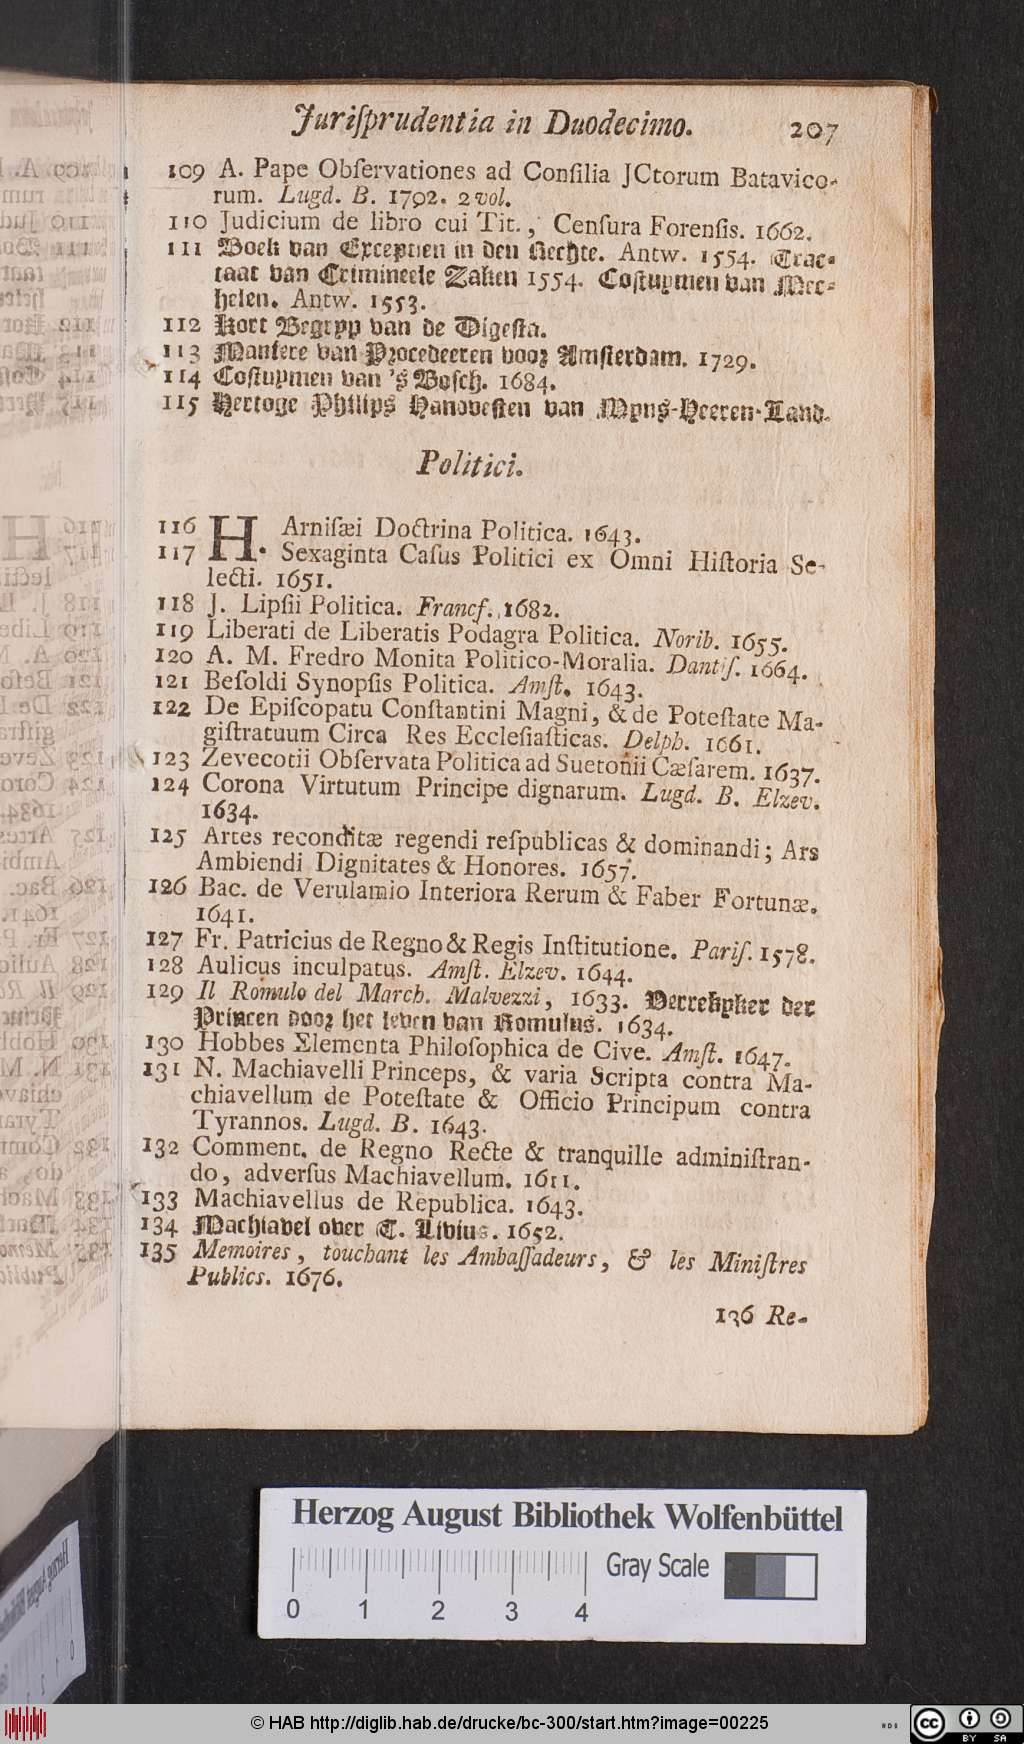 Juriſprudentia in Duodecimo. 207
109 A. Pape Obſervationes ad Conſilia JCtorum Batavico-
rum. Lugd. B. 1702. 2 vol.
110 Judicium de libro cui Tit., Cenſura Forenſis. 1662.
111 Boek van Exceptien in den Rechte. Antw. 1554. Trac-
taat van Crimineele Zaken 1554. Coſtuymen van Mec-
helen. Antw. 1553.
112 Kort Begryp van de Digeſta.
113 Maniere van Procedeeren voor Amſterdam. 1729.
114 Coſtuymen van 's Boſch. 1684.
115 Hertoge Philips Hanoveſten van Myns-Heeren-Land.
Politici.
116 H. Arniſæi Doctrina Politica. 1643.
117 Sexaginta Caſus Politici ex Omni Hiſtoria Se-
lecti. 1651.
118 J. Lipſii Politica. Francf. 1682.
119 Liberati de Liberatis Podagra Politica. Norib. 1655.
120 A. M. Fredro Monita Politico-Moralia. Dantiſ. 1664.
121 Beſoldi Synopſis Politica. Amſt. 1643.
122 De Epiſcopatu Conſtantini Magni, & de Poteſtate Ma-
giſtratuum Circa Res Eccleſiaſticas. Delph. 1661.
123 Zevecotii Obſervata Politica ad Suetonii Cæſarem. 1637.
124 Corona Virtutum Principe dignarum. Lugd. B. Elzev.
1634.
125 Artes reconditæ regendi reſpublicas & dominandi; Ars
Ambiendi Dignitates & Honores. 1657.
126 Bac. de Verulamio Interiora Rerum & Faber Fortunæ.
1641.
127 Fr. Patricius de Regno & Regis Inſtitutione. Pariſ. 1578.
128 Aulicus inculpatus. Amſt. Elzev. 1644.
129 Il Romulo del March. Malvezzi, 1633. Verrekyker der
Princen door het leven van Romulus. 1634.
130 Hobbes Elementa Philoſophica de Cive. Amſt. 1647.
131 N. Machiavelli Princeps, & varia Scripta contra Ma-
chiavellum de Poteſtate & Officio Principum contra
Tyrannos. Lugd. B. 1643.
132 Comment. de Regno Recte & tranquille adminiſtran-
do, adverſus Machiavellum. 1611.
133 Machiavellus de Republica. 1643.
134 Machiavel over T. Livius. 1652.
135 Memoires, touchant les Ambaſſadeurs, & les Miniſtres
Publics. 1676.
136 Re-
Herzog August Bibliothek Wolfenbüttel
Gray Scale
0 1 2 3 4
© HAB http://diglib.hab.de/drucke/bc-300/start.htm?image=00225
cc BY SA